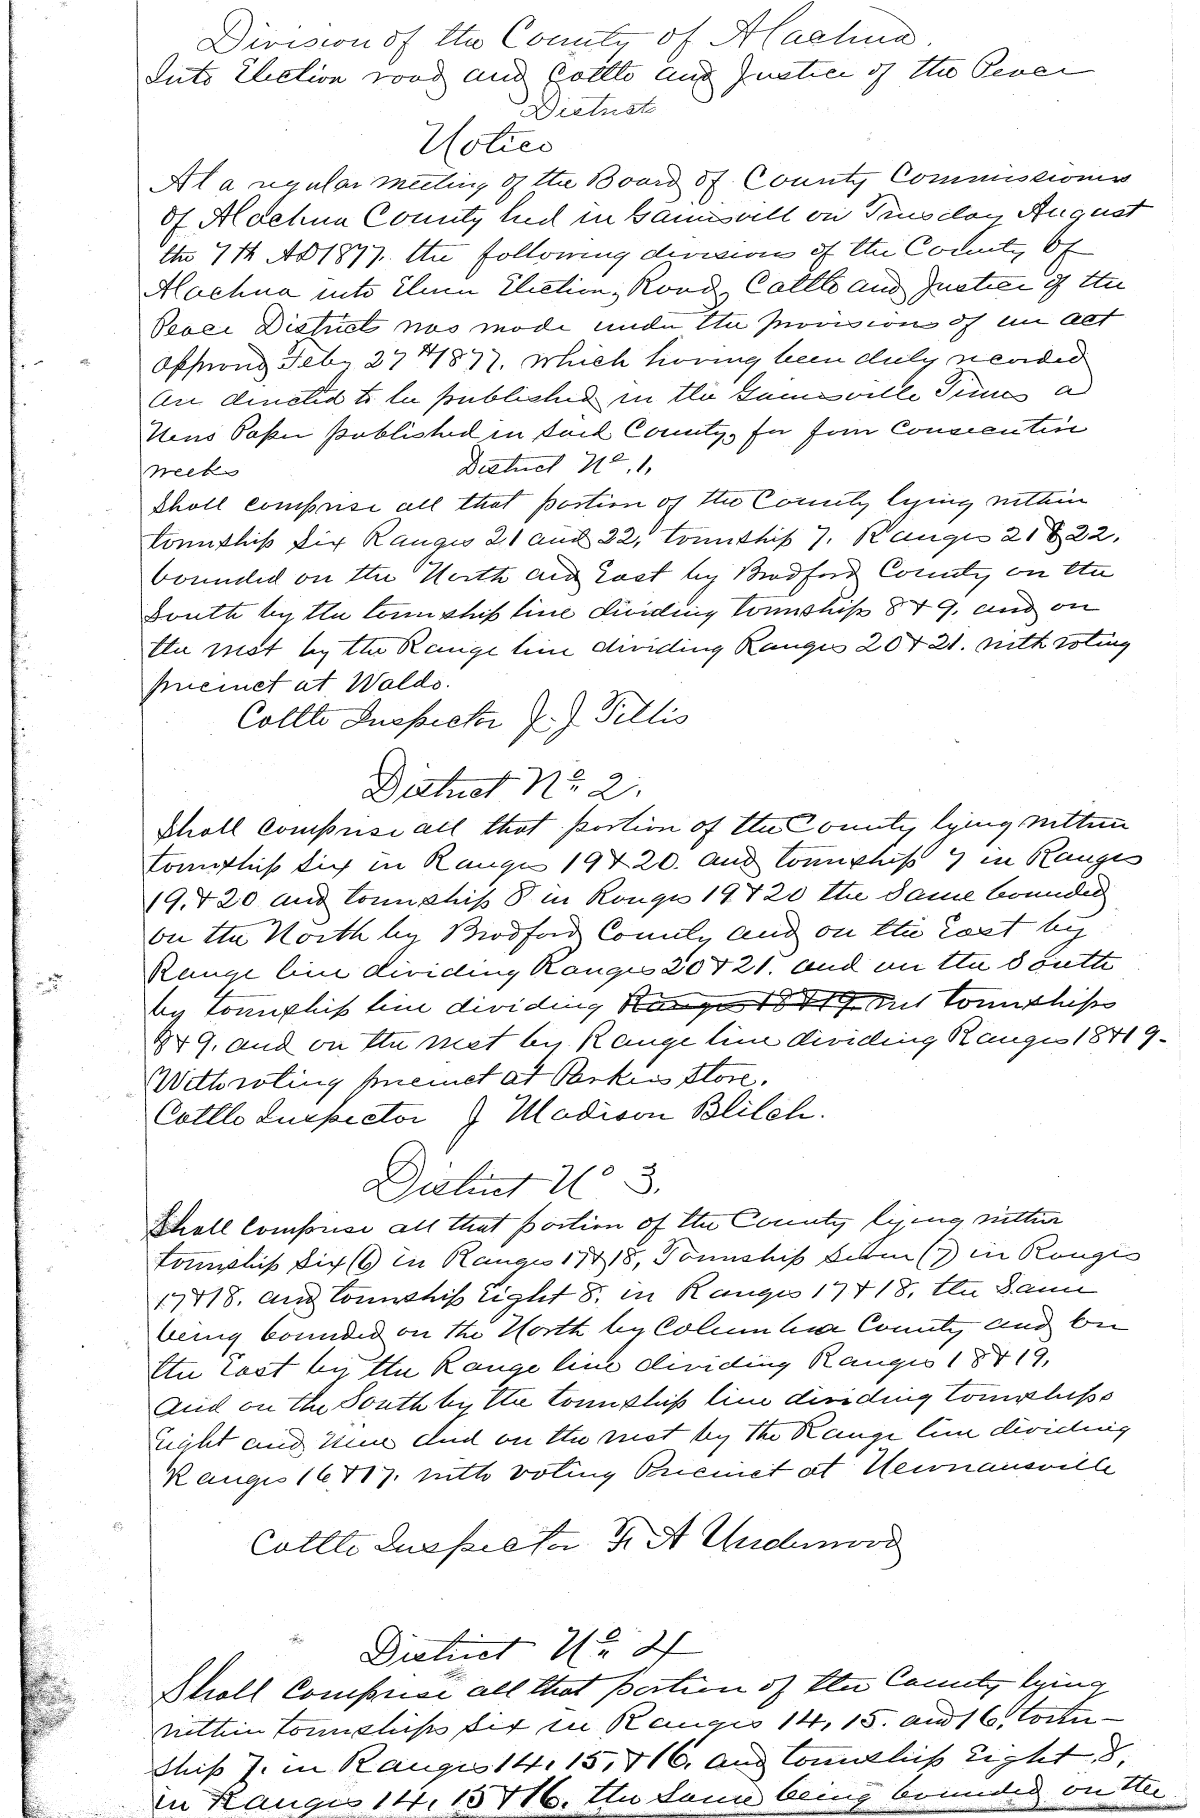 Division of the County of Alachua.
Into Election road and Cattle and Justice of the Peace
District
Notice
At a regular meeting of the Board of County Commissioners
of Alachua County hed in Gainesvill on Tuesday August
the 7th AD 1877. the following division of the County of
Alachua into Election, Road, Cattle and Justice of the
Peace Districts was made under the provisions of an act
approved Feby 27th 1877. which having been duly recorded
are directed to be published in the Gainesville Times a
News Paper published in said County, for four Consecutive
weeks District No. 1.
Shall comprise all that portion of the County lying within
township six Ranges 21 and 22, township 7. Ranges 21 & 22.
bounded on the North and East by Bradford County on the
South by the township line dividing townships 8 & 9. and on
the west by the Range line dividing Ranges 20 & 21. with voting
precinct at Waldo.
Cattle Inspector J. J. Tillis
District No. 2.
Shall comprise all that portion of the County lying within
township six in Ranges 19 & 20. and township 7 in Ranges
19. & 20 and township 8 in Ranges 19 & 20 the same bounded
on the North by Bradford County and on the East by
Range line dividing Ranges 20 & 21. and on the South
by township line dividing Ranges 18 & 19. townships
8 & 9. and on the west by Range line dividing Ranges 18 & 19.
With voting precinct at Parkers Store.
Cattle Inspector J Madison Blitch.
District No 3.
Shall Comprise all that portion of the County lying within
township six (6) in Ranges 17 & 18, Township seven (7) in Ranges
17 & 18. and township Eight 8. in Ranges 17 & 18, the Same
being bounded on the North by Columbia County and on
the East by the Range line dividing Ranges 18 & 19,
and on the South by the township line dividing townships
eight and Nine and on the west by the Range line dividing
Ranges 16 & 17. with voting Precinct at Newnansville
Cattle Inspector F. A Underwood
District No. 4
Shall Comprise all that portion of the County lying
within townships six in Ranges 14, 15. and 16, town-
ship 7. in Ranges 14. 15, & 16. and township Eight 8,
in Ranges 14, 15 & 16. the same being bounded on the